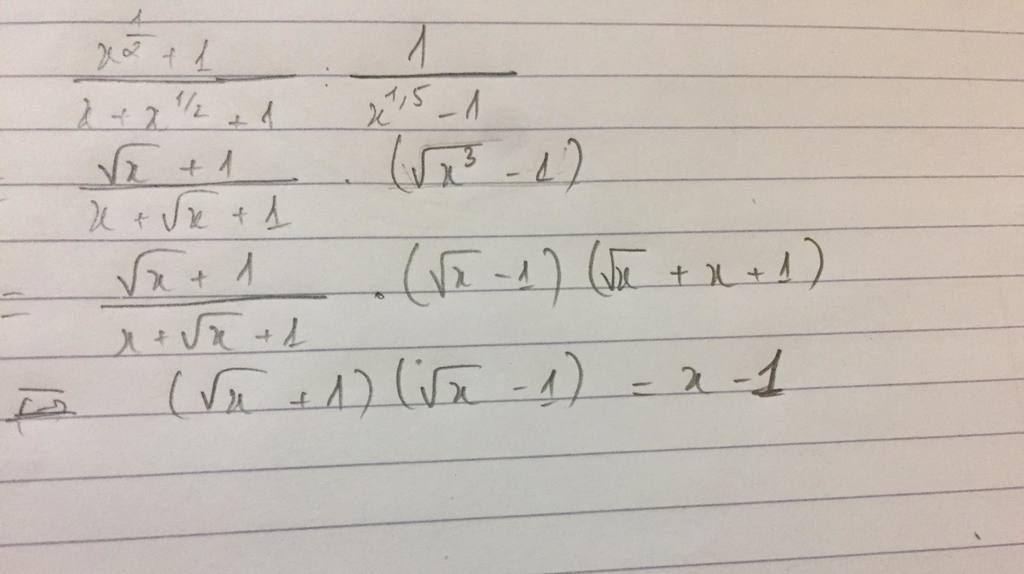 (x^{1/2} + 1)/(x + x^{1/2} + 1) : 1/(x^{1,5} - 1)
(√x + 1)/(x + √x + 1) . (√x³ - 1)
= (√x + 1)/(x + √x + 1) . (√x - 1)(√x + x + 1)
(√x + 1)(√x - 1) = x - 1